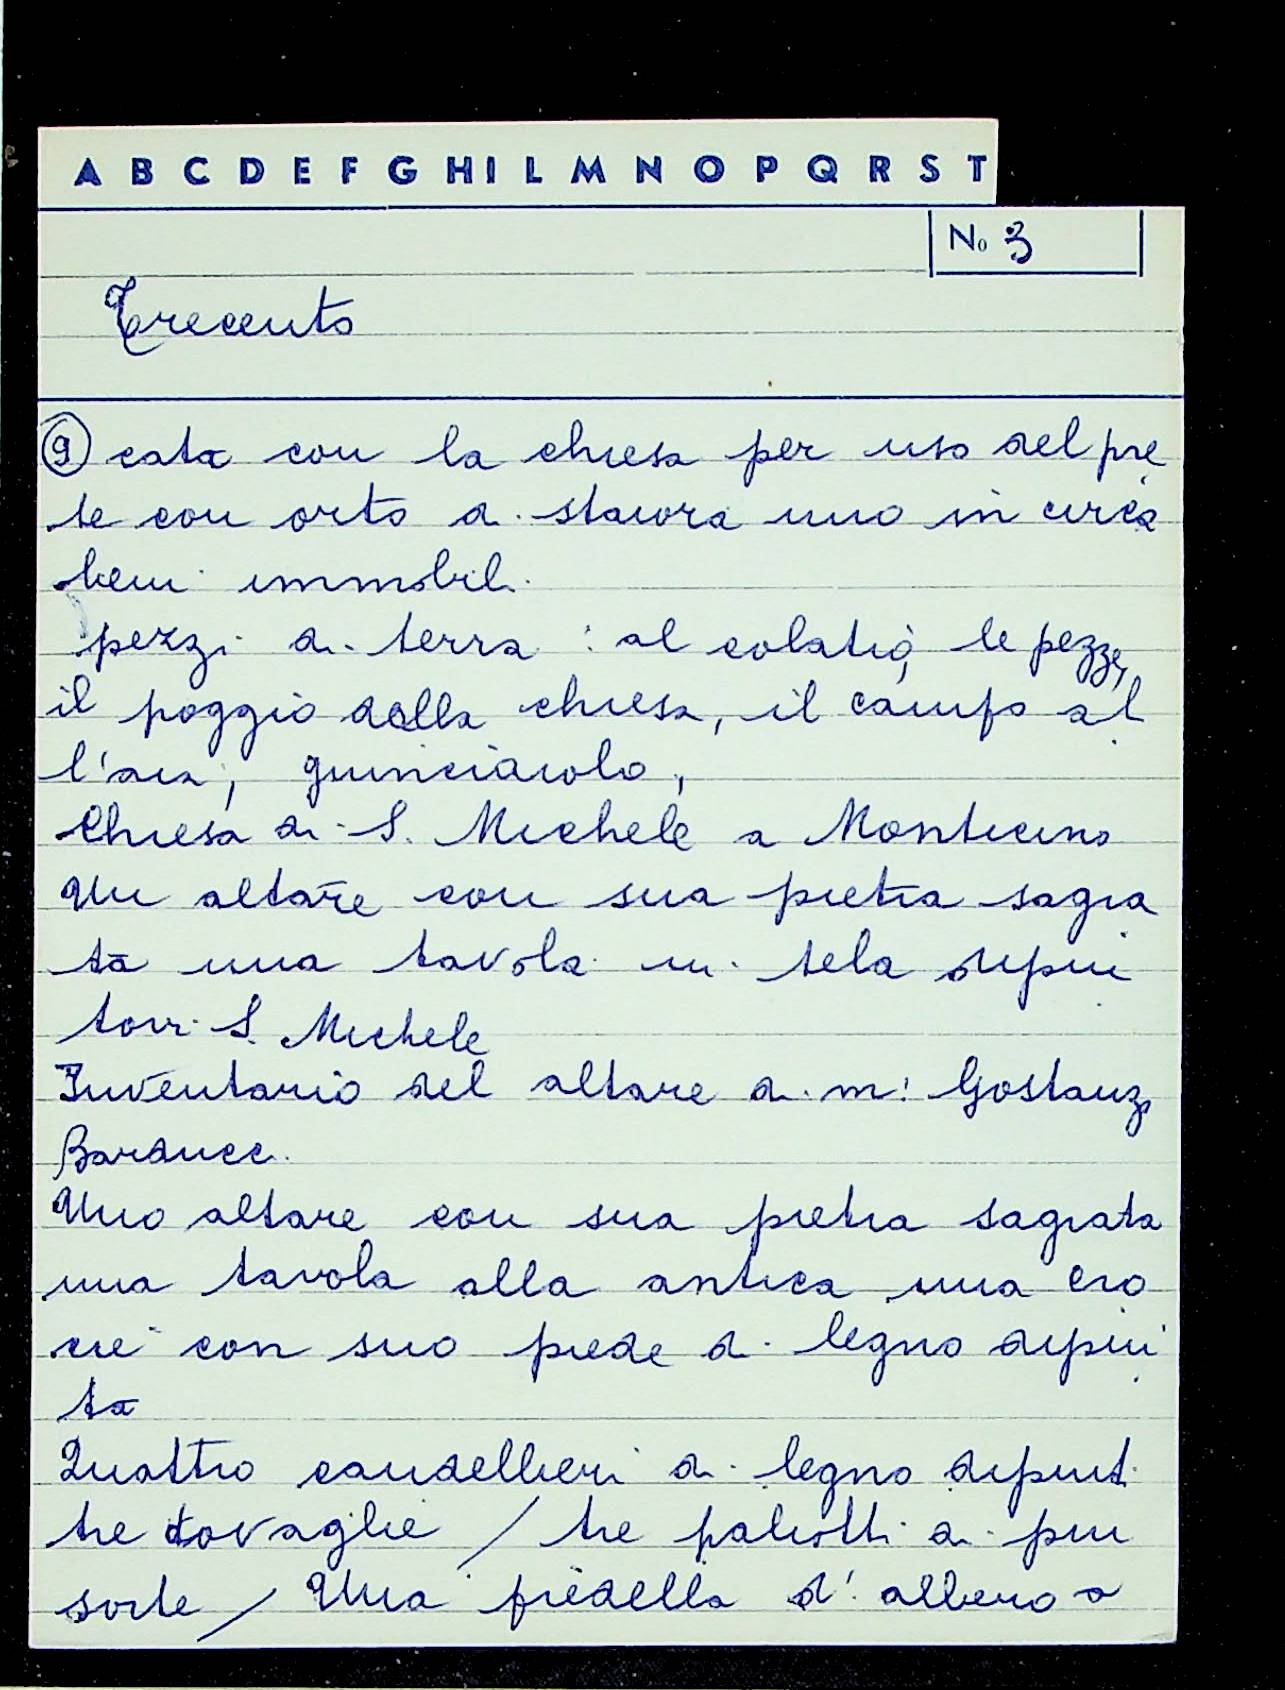 A B C D E F G H I L M N O P Q R S T
No 3
Trecento
9 cata con la chiesa per uso del pre
te con orto di staiora uno in circa
beni immobili
pezzi di terra : al colatio, le pezze,
il poggio della chiesa, il campo al
l'aia, guinciarolo,
Chiesa di S. Michele a Monticino
Un altare con sua pietra sagra
ta una tavola in tela dipin
tovi S. Michele
Inventario del altare di m! Gostanzo
Barducci
Uno altare con sua pietra sagrata
una tavola alla antica una cro
cie con suo piede di legno dipin
ta
Quattro candellieri di legno dipinti
tre tovaglie / tre paliotti di piu
sorte / Una predella d' albero a